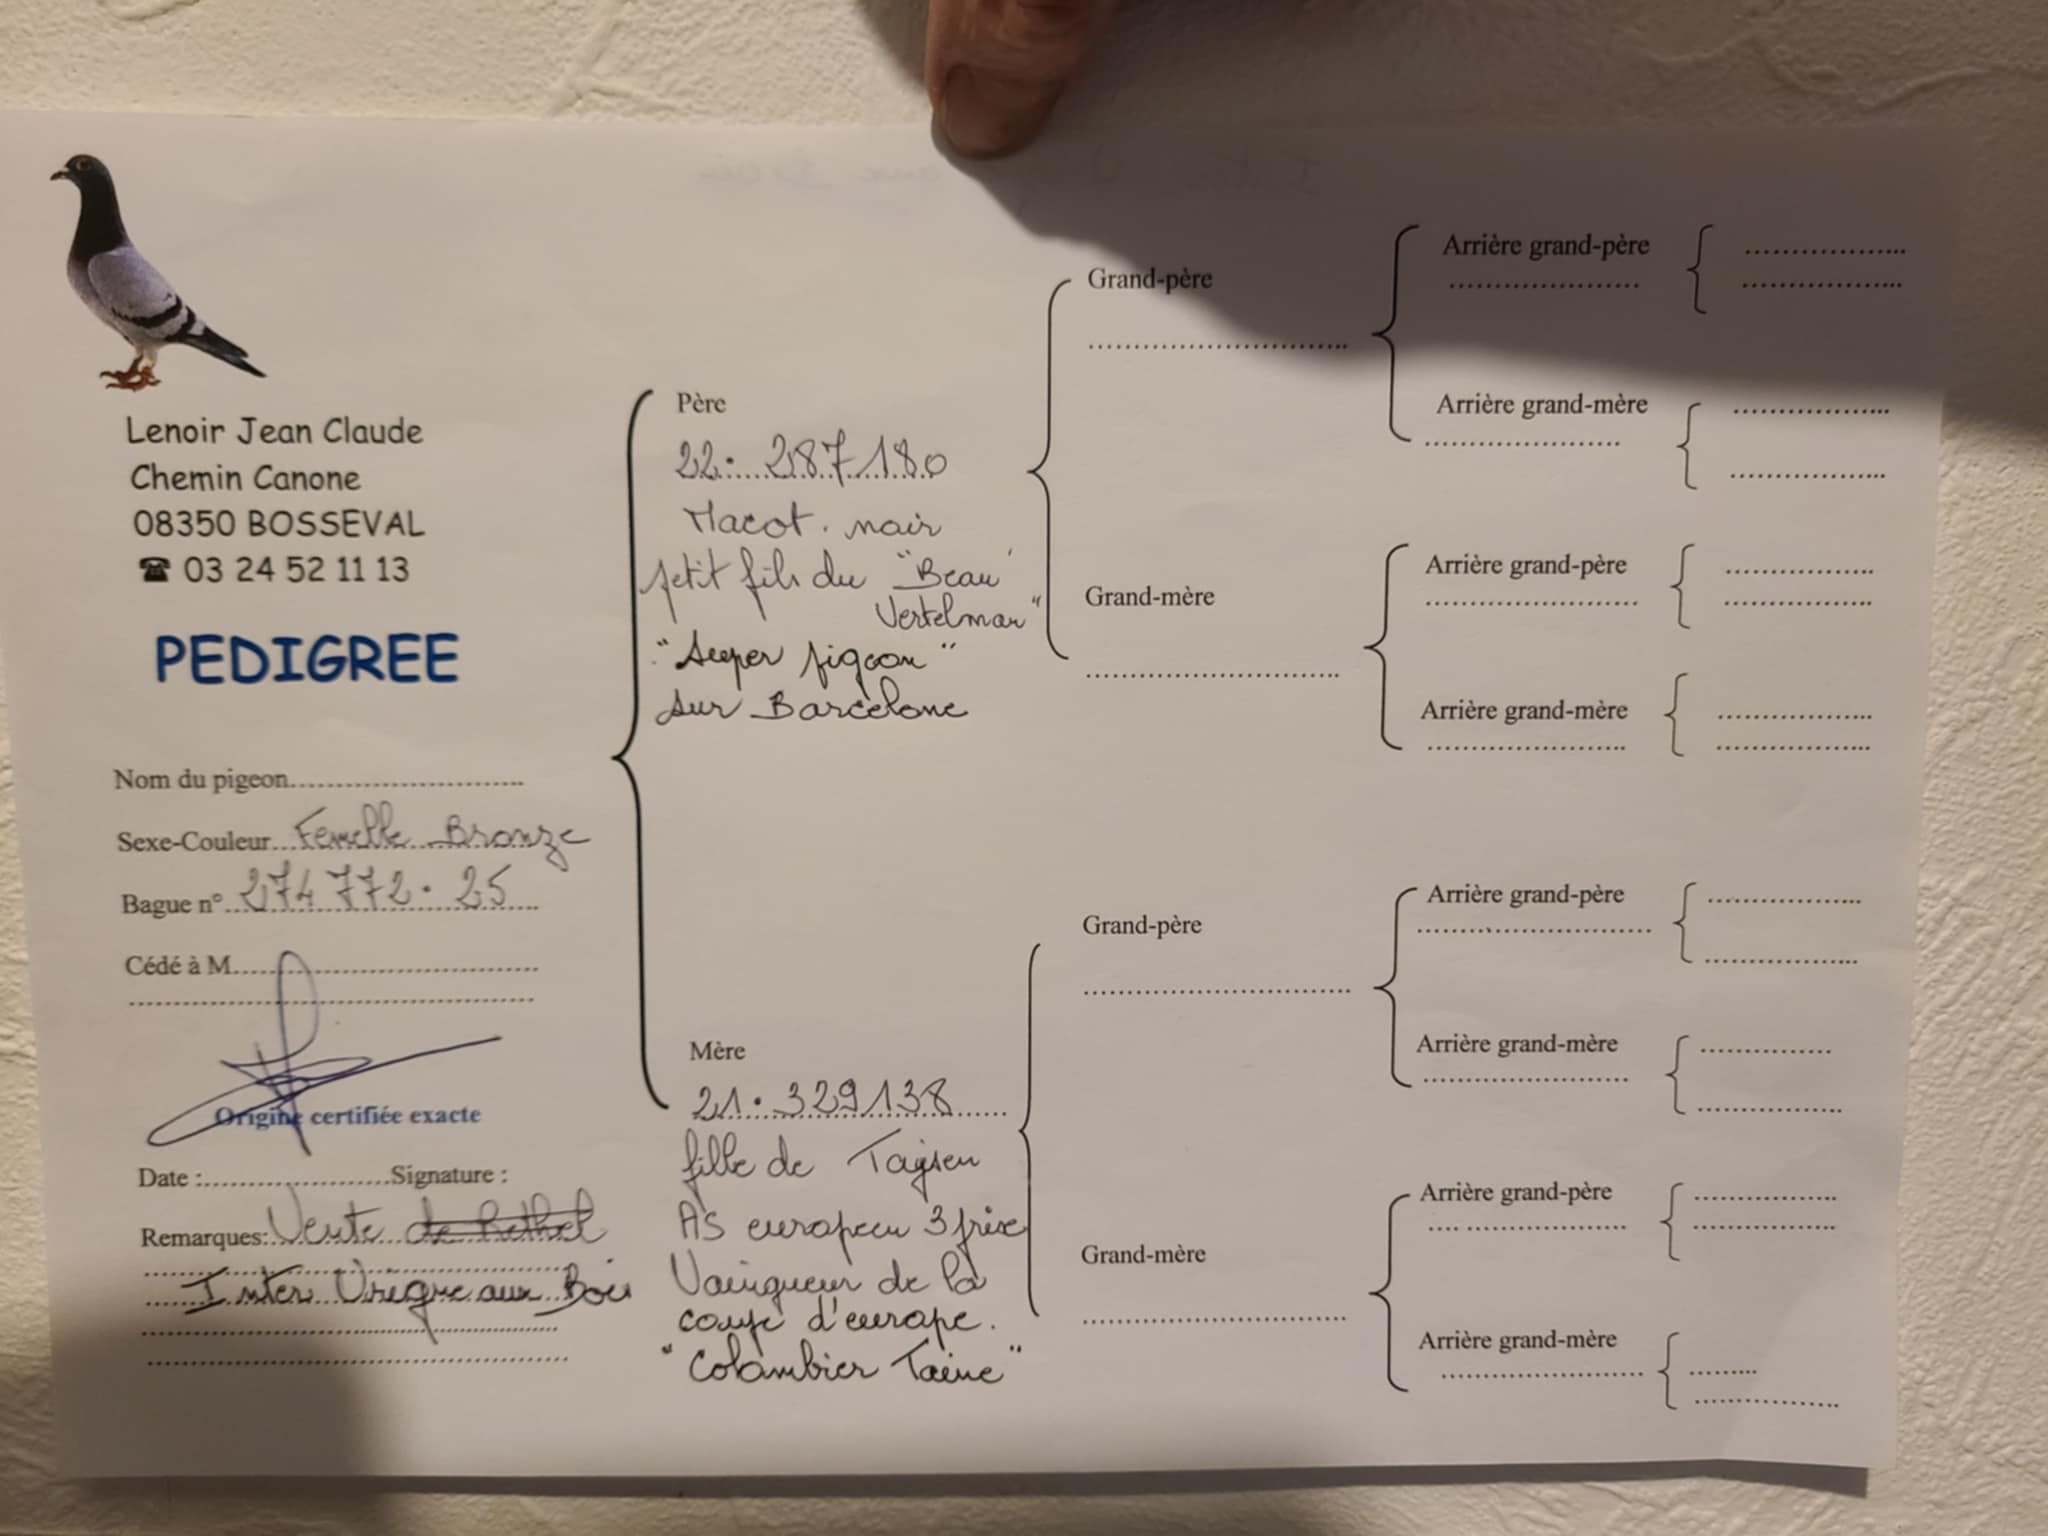 Lenoir Jean Claude
Chemin Canone
08350 BOSSEVAL
☎ 03 24 52 11 13
PEDIGREE
Nom du pigeon..........................
Sexe-Couleur... Femelle Bronze
Bague n° 274 772. 25
Cédé à M..........................
Origine certifiée exacte
Date :.....................Signature :
Remarques: Vente de Rethel
Inter Vrigne aux Bois
Père
22. 287180
Macot. noir
petit fils du "Beau
Vertelman"
"Super pigeon"
sur Barcelone
Mère
21. 329138
fille de
AS europeen 3 prix
Vainqueur de la
coupe d'europe.
"Colombier Taine"
Grand-père
Grand-mère
Grand-père
Grand-mère
Arrière grand-père
Arrière grand-mère
Arrière grand-père
Arrière grand-mère
Arrière grand-père
Arrière grand-mère
Arrière grand-père
Arrière grand-mère